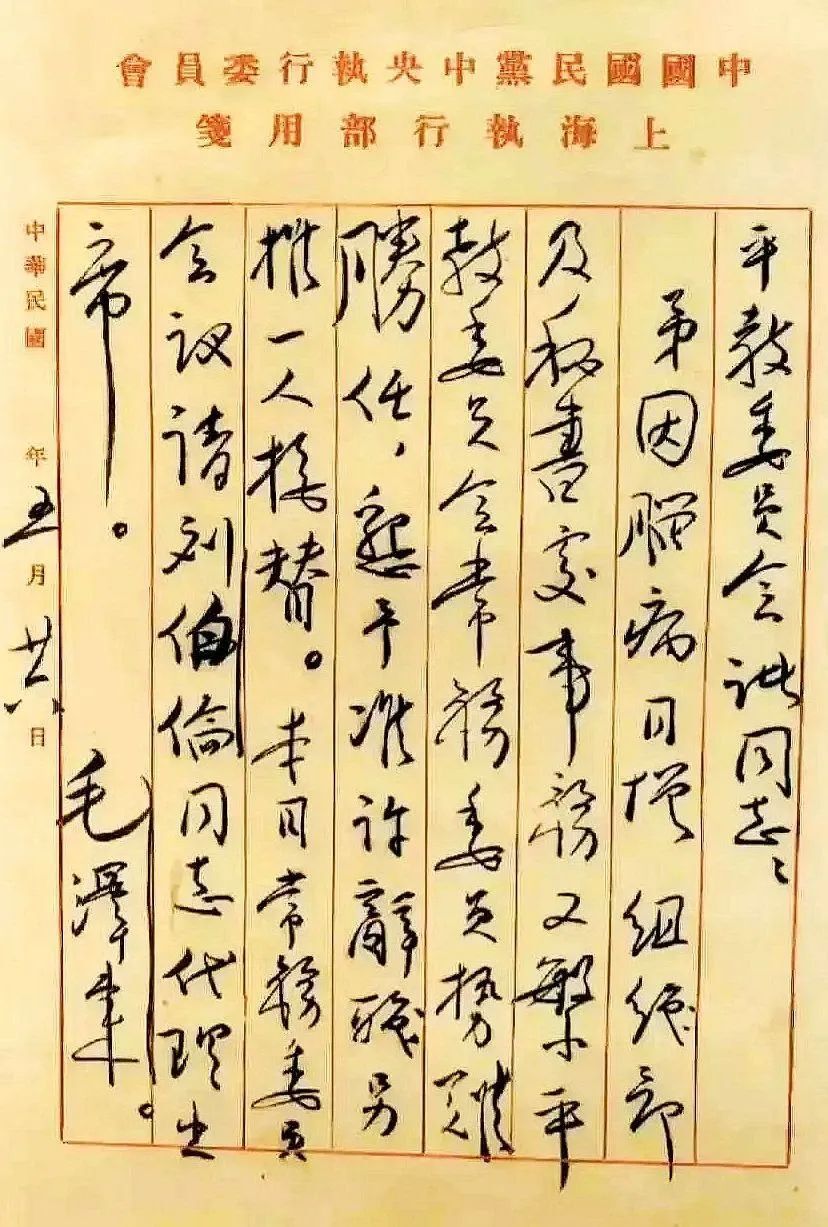 中國國民黨中央執行委員會
上海執行部用箋
平教委员会诸同志、
弟因脑病日增组织部
及秘書处事務又繁平
教委员会常務委员势難
勝任，懇予准许辭職另
推一人接替。本日常務委员
会议请刘伯倫同志代理出
席。
毛澤東。
中華民國 年五月廿六日